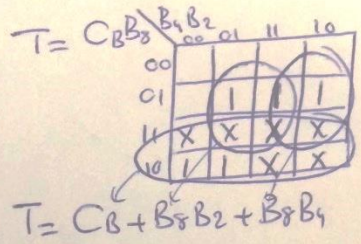 T= CBB8 B4B2
00 01 11 10
00
01 1 1 1
11 X X X X
10 1 1 X X
T= CB+B8B2+B8B4